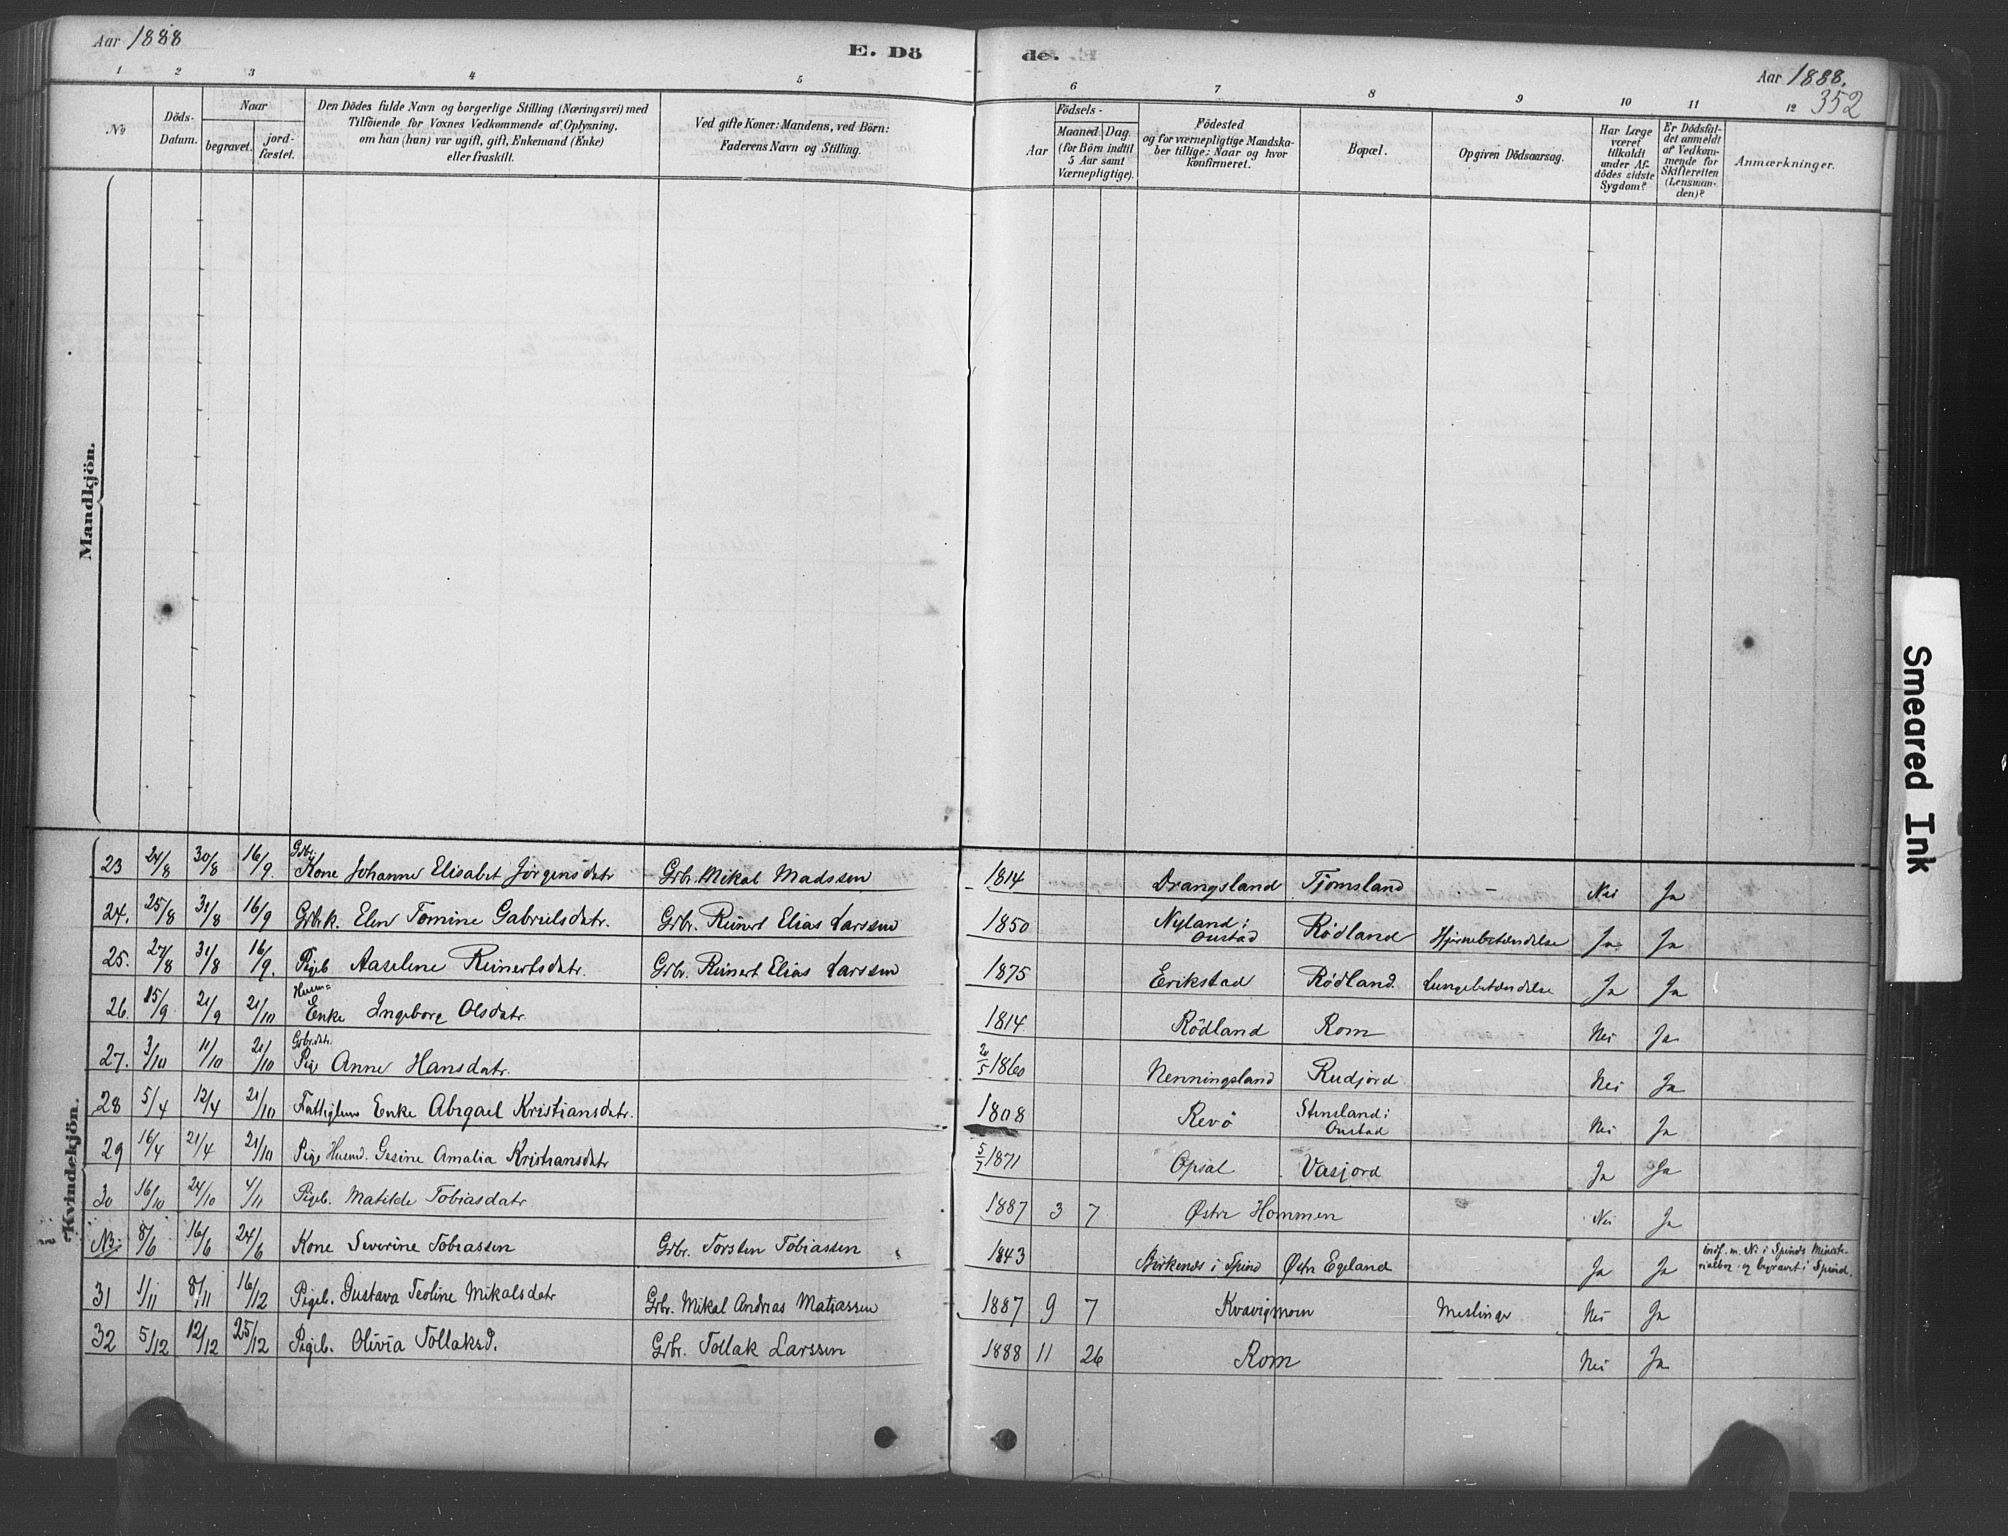 Aar 1888
E. Dö de.
Aar 1888.
352
1 2 3 4 5 6 7 8 9 10 11 12
No
Döds-Datum.
Naar
begravet.
jord-fæstet.
Den Dödes fulde Navn og borgerlige Stilling (Næringsvei) med
Tilföiende for Voxnes Vedkommende af Oplysning,
om han (hun) var ugift, gift, Enkemand (Enke)
eller fraskilt.
Ved gifte Koner: Mandens, ved Börn:
Faderens Navn og Stilling.
Födsels-
Aar
Maaned. Dag.
(for Börn indtil
5 Aar samt
Værnepligtige).
Födested
og for værnepligtige Mandska-
ber tillige: Naar og hvor
konfirmeret.
Bopæl.
Opgiven Dödsaarsag.
Har Læge
været
tilkaldt
under Af-
dødes sidste
Sygdom?
Er Dödsfal-
det anmeldt
af Vedkom-
mende for
Skifteretten
(Lensman-
den)?
Anmærkninger.
Mandkjön.
Kvindekjön.
23 24/8 30/8 16/9 Gbr. Kone Johanne Elisabet Jörgensdatr Grbr. Mikal Madssen 1814 Drangsland Tjomsland - Nei Ja
24. 25/8 31/8 16/9 Grbrk. Elen Tomine Gabrielsdatr. Grbr. Reinert Elias Larssen 1850 Nyland i Oustad Rødland Hjernebetændelse Ja Ja
25. 27/8 31/8 16/9. Pigeb Aaselene Reinertsdatr. Grbr. Reinert Elias Larssen 1875 Erikstad Rødland Lungebetændelse Ja Ja
26. 15/9 21/9 21/10 Huusm= Enke Ingeborg Olsdatr 1814 Rödland Rom Nei Ja
27. 3/10 11/10 21/10 Grbr.datr. Pige Anne Hansdatr. 21/5 1860 Nenningsland Rudjord Nei Ja
28 5/4 12/4 21/10 Fattiglem Enke Abigael Kristiansdatr. 1808 Revö Stensland i Oustad Nei Ja
29 16/4 21/4 21/10 Pige Huusmd. Gesine Amalia Kristiansdatr 5/7 1871 Opsal Vasjord Ja Ja
30 16/10 24/10 4/11 Pigeb. Matilde Tobiasdatr 1887 3 7 Østre Hommen Nei Ja
NB: 8/6 16/6 24/6 Kone Severine Tobiassen Grbr. Torsten Tobiassen 1843 Birkenes i Spind Østre Egeland Ja Ja indf. m. No i Spinds Ministe-
rialbog og begravet i Spind.
31 1/11 8/11 16/12 Pigeb. Gustava Teoline Mikalsdatr Grbr. Mikal Andreas Matiassen 1887 9 7 Kvavigmoen Meslinger Nei Ja
32 5/12 12/12 25/12 Pigeb. Olivia Tollaksd. Grbr. Tollak Larssen 1888 11 26 Rom Nei Ja
Smeared Ink